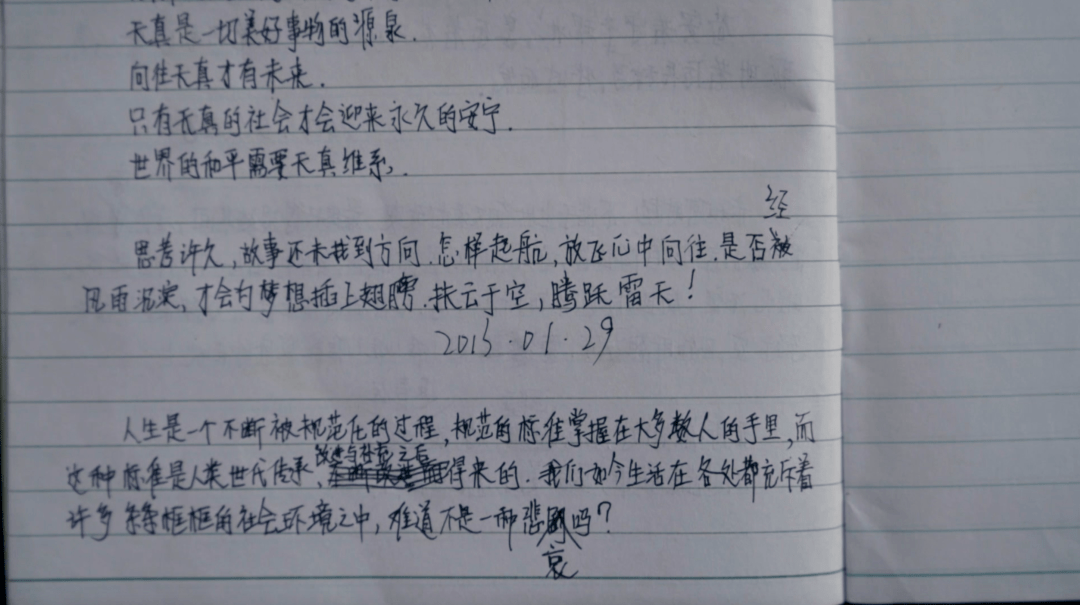 天真是一切美好事物的源泉.
向往天真才有未来.
只有天真的社会才会迎来永久的安宁.
世界的和平需要天真维系.
经
思考许久,故事还未找到方向.怎样起航,放飞心中向往.是否被
风雨沉淀,才会为梦想插上翅膀.扶云于空,腾跃雷天!
2015.01.29
人生是一个不断被规范化的过程,规范的标准掌握在大多数人的手里,而
这种标准是人类世代传承、改进与补充之后得来的.我们如今生活在各处都充斥着
许多条条框框的社会环境之中,难道不是一种悲吗?
哀